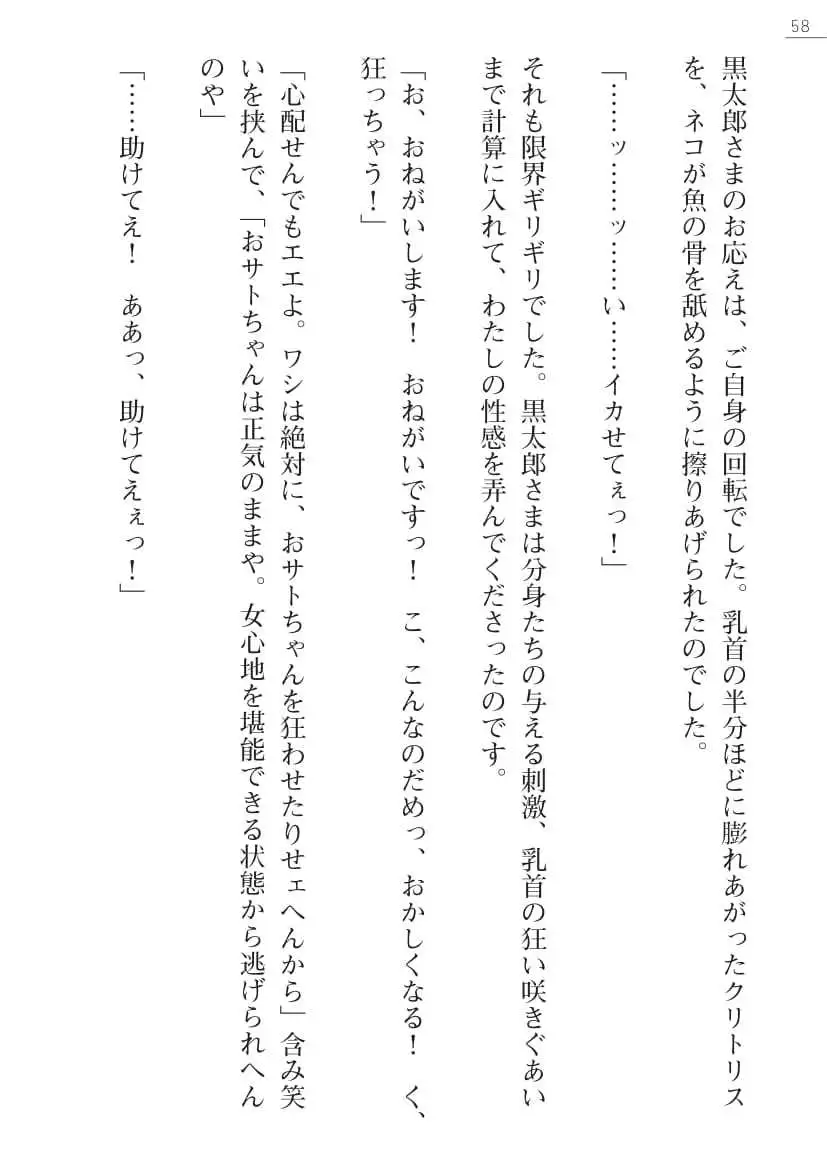 58
黒太郎さまのお応えは、ご自身の回転でした。乳首の半分ほどに膨れあがったクリトリス
を、ネコが魚の骨を舐めるように擦りあげられたのでした。
「……ッ……ッ……い……イカせてぇっ！」
それも限界ギリギリでした。黒太郎さまは分身たちの与える刺激、乳首の狂い咲きぐあい
まで計算に入れて、わたしの性感を弄んでくださったのです。
「お、おねがいします！　おねがいですっ！　こ、こんなのだめっ、おかしくなる！　く、
狂っちゃう！」
「心配せんでもエエよ。ワシは絶対に、おサトちゃんを狂わせたりせェへんから」含み笑
いを挟んで、「おサトちゃんは正気のままや。女心地を堪能できる状態から逃げられへん
のや」
「……助けてえ！　ああっ、助けてえぇっ！」